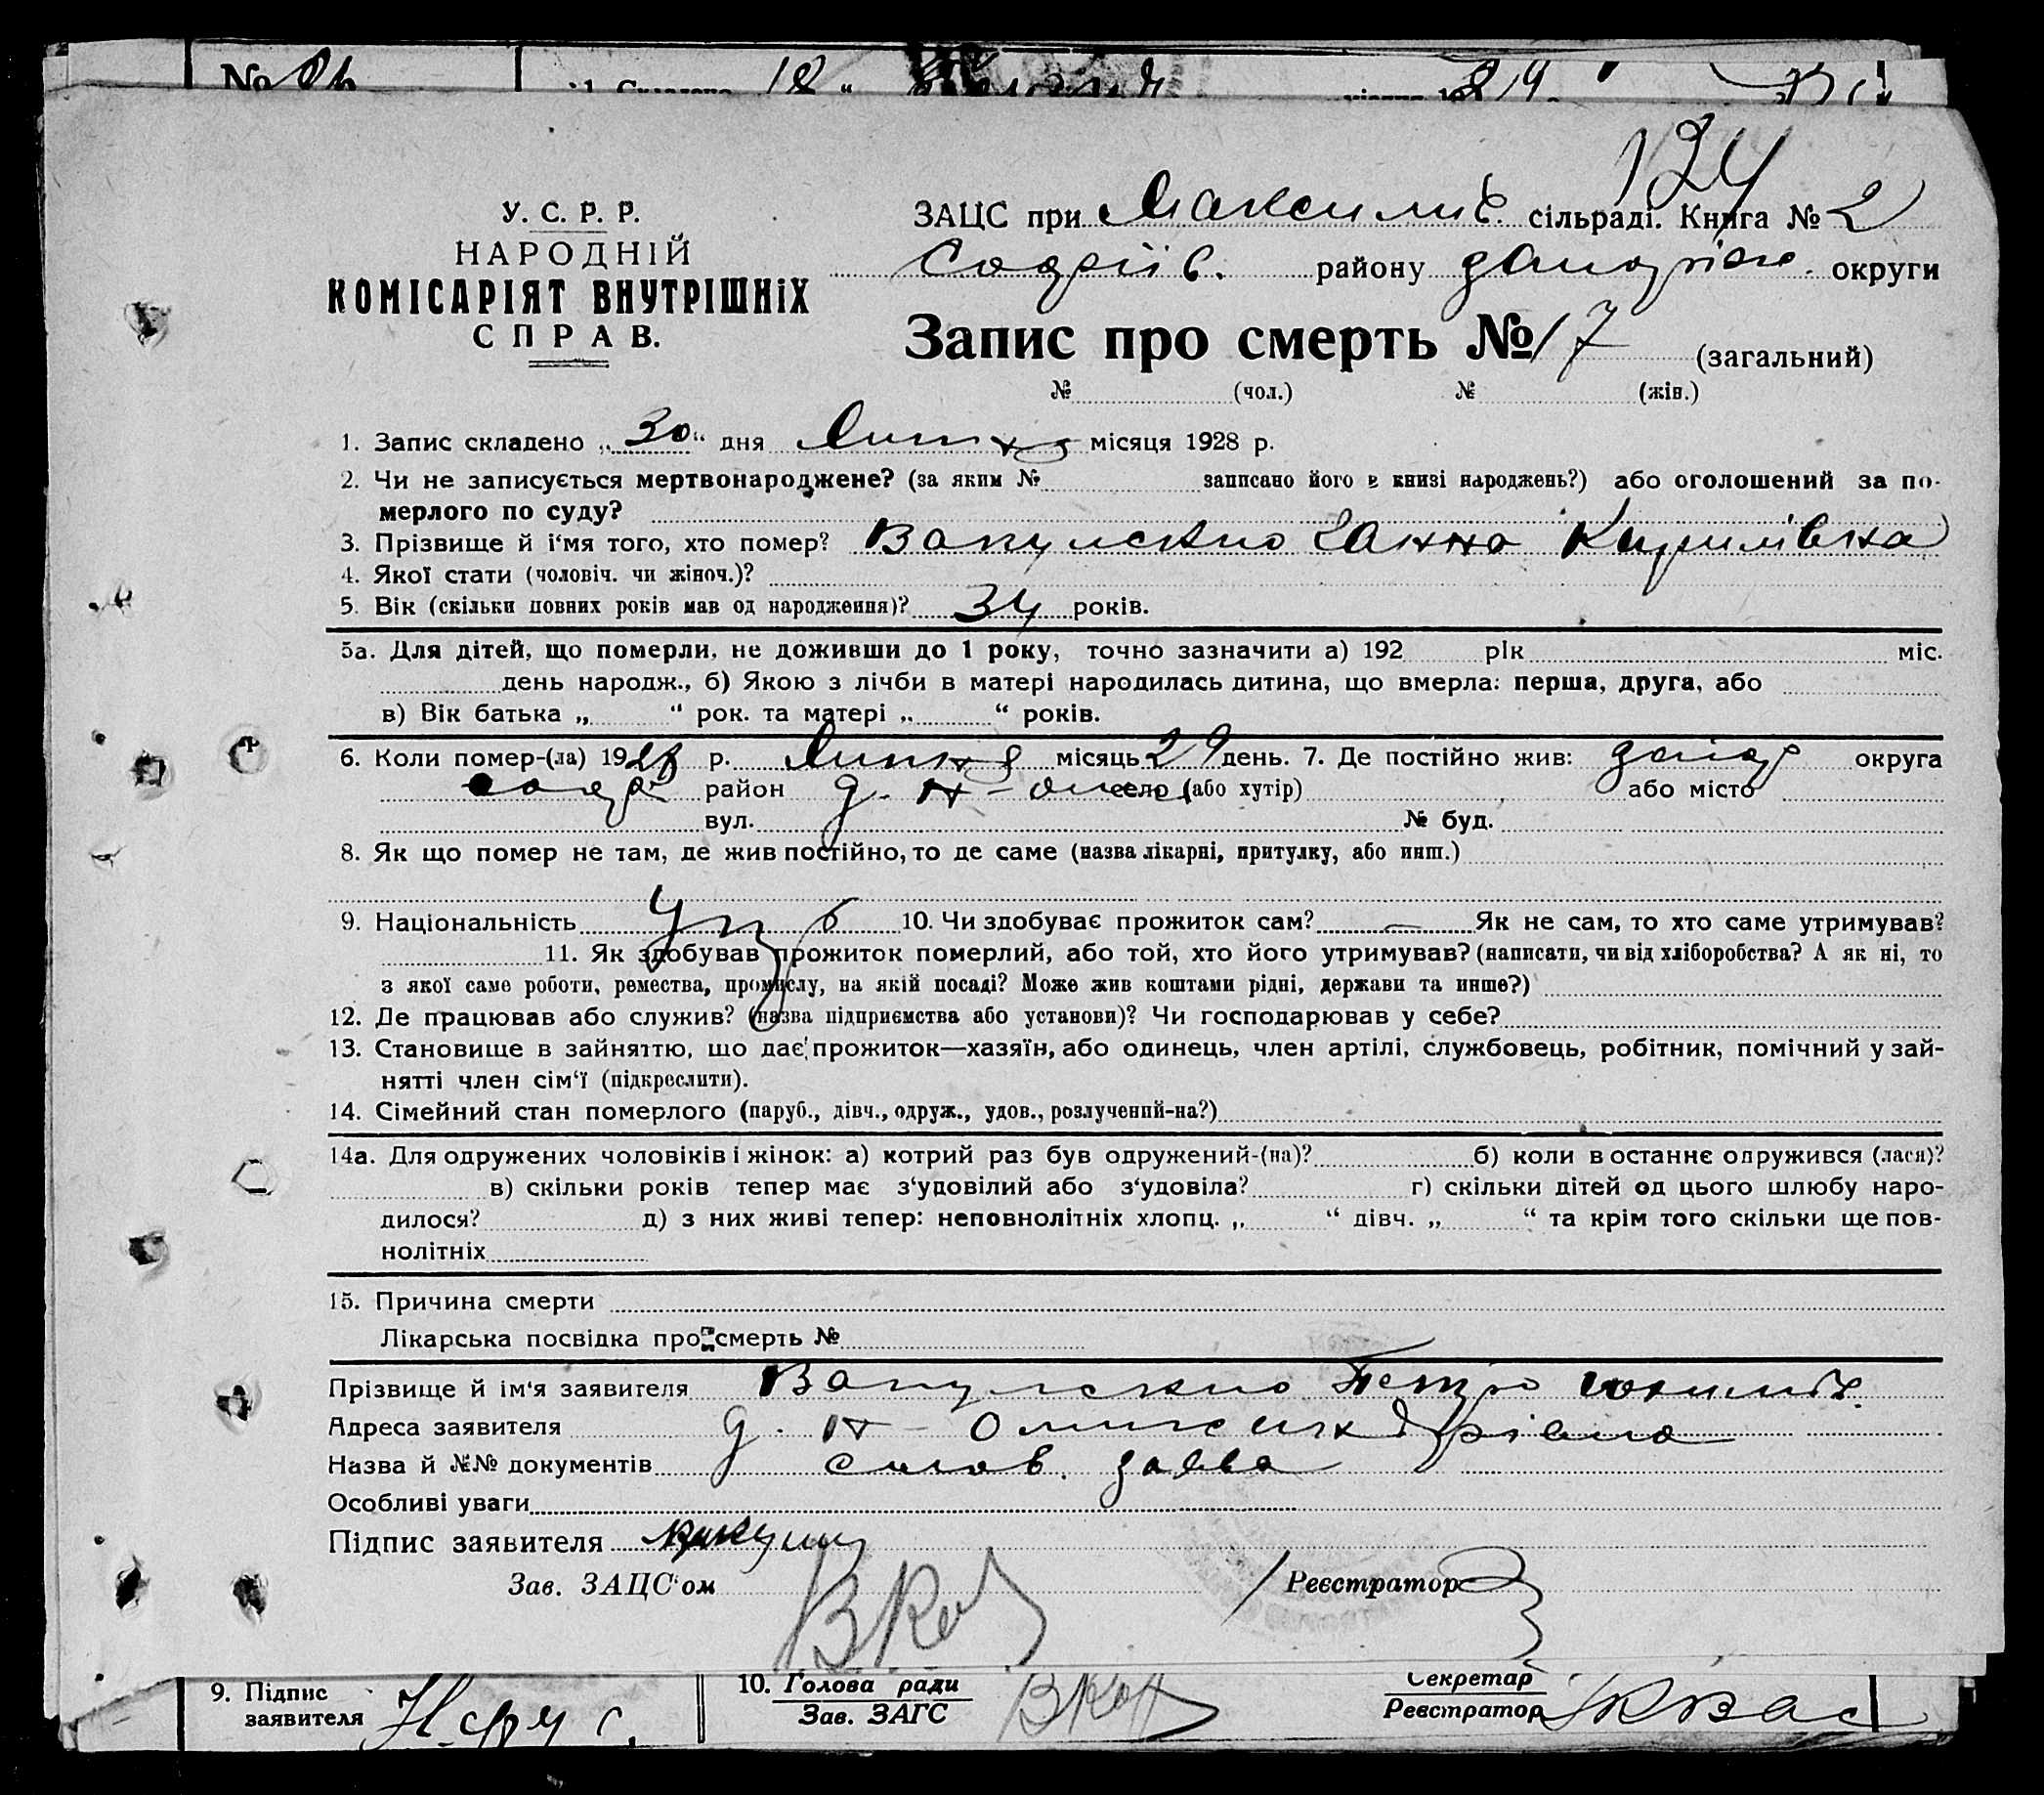 №
124
У. С. Р. Р.
НАРОДНІЙ
КОМІСАРІЯТ ВНУТРІШНіХ
СПРАВ.
ЗАЦС при Максимів. сільраді. Книга № 2
Софіїв. району Запоріж. округи
Запис про смерть № 17 (загальний)
№ (чол.) № (жін.)
1. Запис складено „30“ дня Липня місяця 1928 р.
2. Чи не записується мертвонароджене? (за яким № записано його в книзі народжень?) або оголошений за по-
мерлого по суду?
3. Прізвище й і'мя того, хто помер? Ганна Кирилівна
4. Якої стати (чоловіч. чи жіноч.)?
5. Вік (скільки повних років мав од народження)? 34 років.
5а. Для дітей, що померли, не доживши до 1 року, точно зазначити а) 192 рік міс.
день народж., б) Якою з лічби в матері народилась дитина, що вмерла: перша, друга, або
в) Вік батька „ “ рок. та матері „ “ років.
6. Коли помер-(ла) 1928 р. Липня місяць 29 день. 7. Де постійно жив: Запор округа
Софі район село (або хутір) або місто
вул. № буд.
8. Як що помер не там, де жив постійно, то де саме (назва лікарні, притулку, або инш.)
9. Національність Укр 10. Чи здобуває прожиток сам? — Як не сам, то хто саме утримував?
11. Як здобував прожиток померлий, або той, хто його утримував? (написати, чи від хліборобства? А як ні, то
з якої саме роботи, ремества, промислу, на якій посаді? Може жив коштами рідні, держави та инше?)
12. Де працював або служив? (назва підприємства або установи)? Чи господарював у себе?
13. Становище в зайняттю, що дає прожиток—хазяїн, або одинець, член артілі, службовець, робітник, помічний у зай-
нятті член сім'ї (підкреслити).
14. Сімейний стан померлого (паруб., дівч., одруж., удов., розлучений-на?)
14а. Для одружених чоловіків і жінок: а) котрий раз був одружений-(на)? б) коли в останнє одружився (лася)?
в) скільки років тепер має з'удовілий або з'удовіла? г) скільки дітей од цього шлюбу наро-
дилося? д) з них живі тепер: неповнолітніх хлопц. „ “ дівч. „ “ та крім того скільки ще пов-
нолітніх
15. Причина смерти
Лікарська посвідка про смерть №
Прізвище й ім'я заявителя Петро
Адреса заявителя
Назва й №№ документів слов. заява
Особливі уваги
Підпис заявителя
Зав. ЗАЦС'ом Реєстратор
9. Підпис
заявителя
10. Голова ради
Зав. ЗАГС
Секретар
Реєстратор